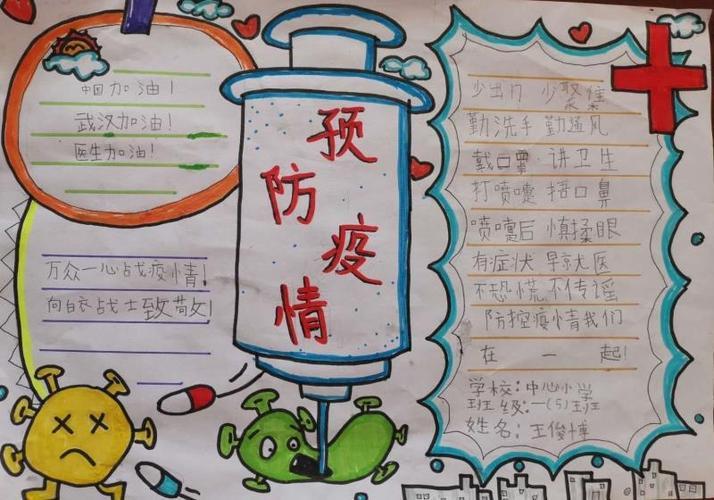 中国加油!
武汉加油!
医生加油!
万众一心战疫情!
向白衣战士致敬!
预防疫情
少出门 少聚集
勤洗手 勤通风
戴口罩 讲卫生
打喷嚏 捂口鼻
喷嚏后 慎揉眼
有症状 早就医
不恐慌 不传谣
防控疫情我们
在一起!
学校:中心小学
班级:一(5)班
姓名:王俊博